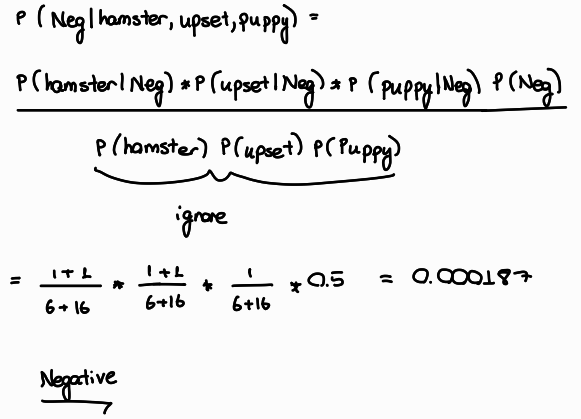 P (Neg|hamster, upset, puppy) =
P(hamster|Neg) * P(upset|Neg) * P (puppy|Neg) P(Neg)
P(hamster) P(upset) P(Puppy)
ignore
= 1+1/6+16 * 1+1/6+16 * 1/6+16 * 0.5 = 0.000187
Negative